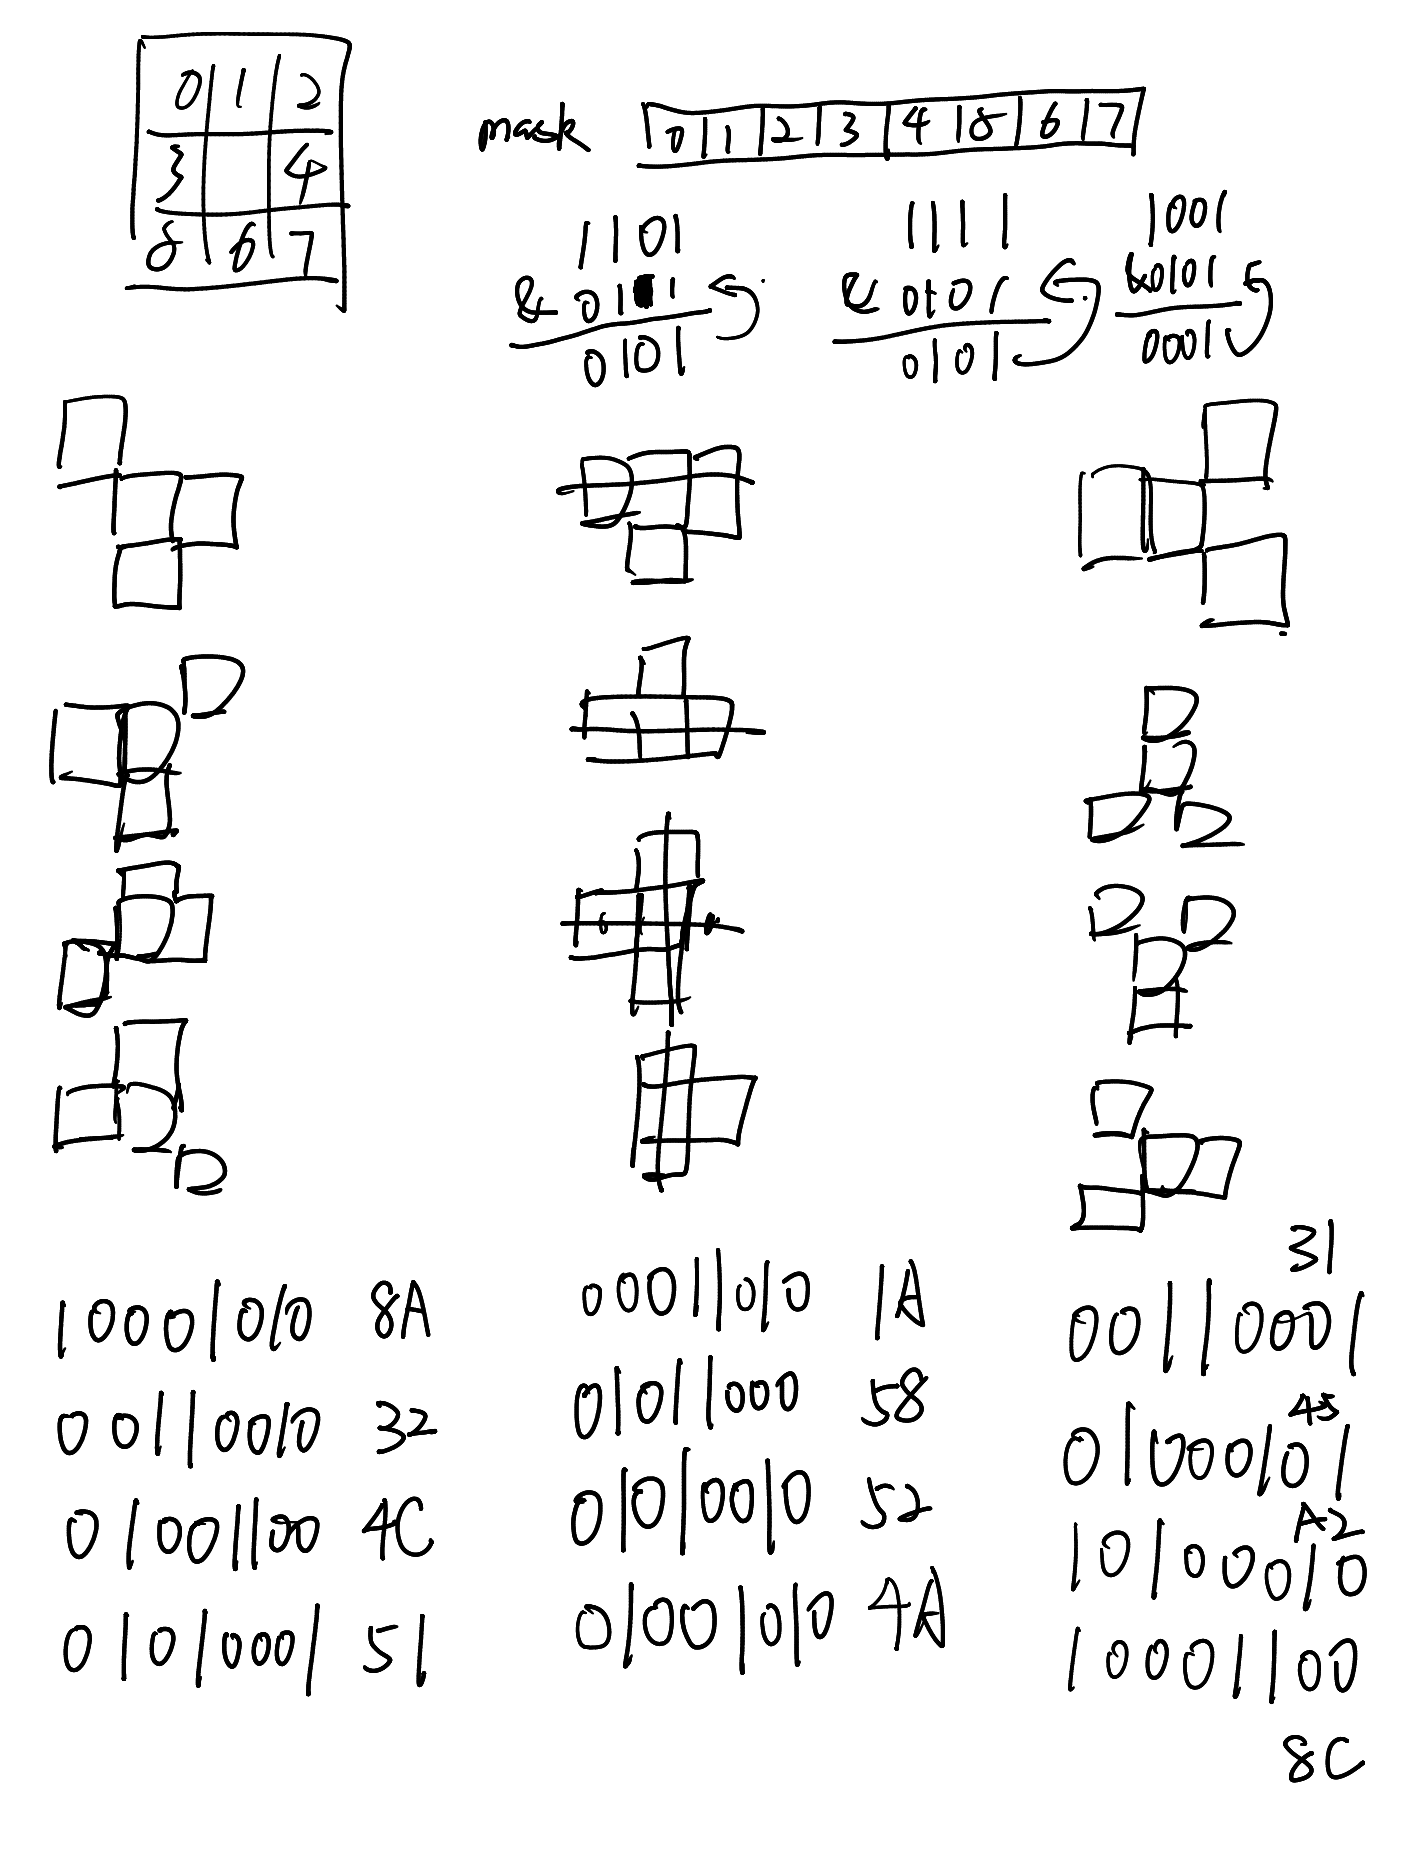 0 1 2
3 4
5 6 7
mask 0 1 2 3 4 5 6 7
1101
& 0101
0101
1111
& 0101
0101
1001
& 0101
0001
10001010 8A
00110010 32
01001100 4C
01010001 51
00011010 1A
01011000 58
01010010 52
01001010 4A
31
00110001
45
01000101
A2
10100010
10001100
8C